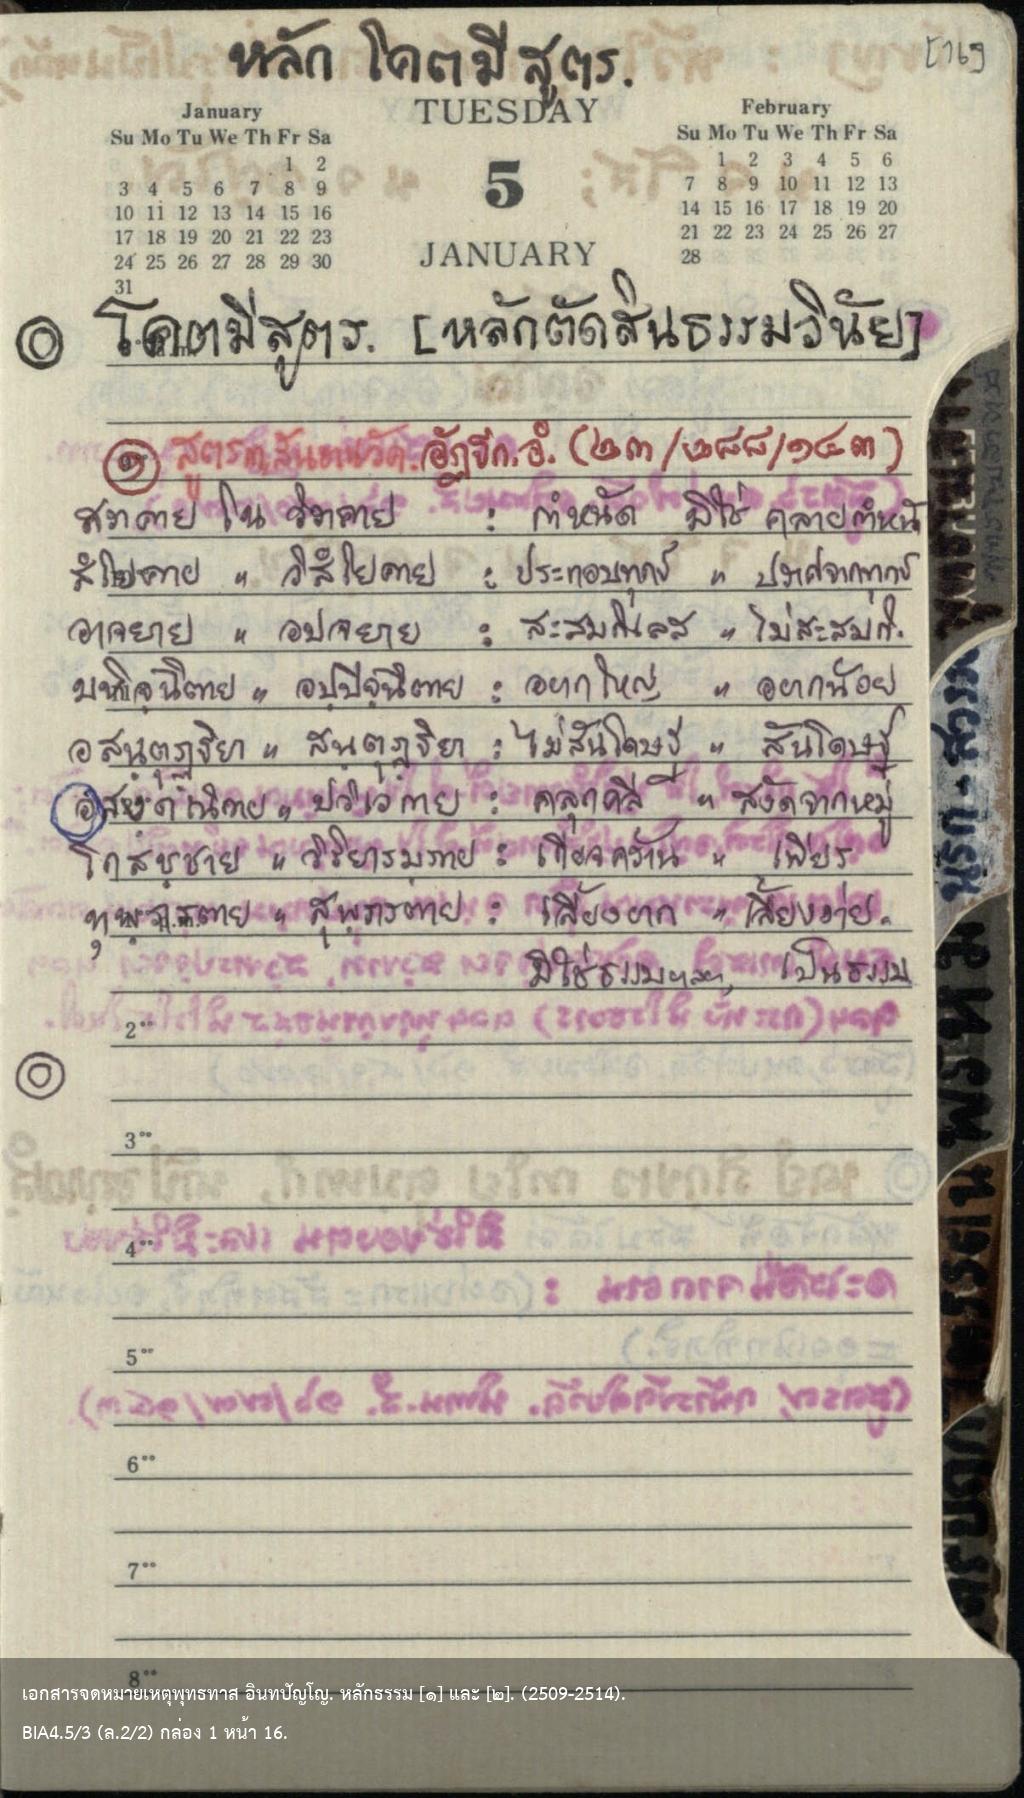 หลัก โคตมีสูตร.
[16]
TUESDAY
5
JANUARY
January
Su Mo Tu We Th Fr Sa
1 2
3 4 5 6 7 8 9
10 11 12 13 14 15 16
17 18 19 20 21 22 23
24 25 26 27 28 29 30
31
February
Su Mo Tu We Th Fr Sa
1 2 3 4 5 6
7 8 9 10 11 12 13
14 15 16 17 18 19 20
21 22 23 24 25 26 27
28
โคตมีสูตร. [หลักตัดสินธรรมวินัย]
๑ สูตร๓ สันธานวัค. อัฏฐก. อํ. (๒๓/๒๘๘/๑๔๓)
สราคาย ใน วิราคาย : กำหนัด มิใช่ คลายกำหนัด
สํโยคาย " วิสํโยคาย : ประกอบทุกข์ " ปราศจากทุกข์
อาจยาย " อปจยาย : สะสมกิเลส " ไม่สะสมกิ.
มหิจฺฉตาย " อปฺปิจฺฉตาย : อยากใหญ่ " อยากน้อย
อสนฺตุฏฺฐิยา " สนฺตุฏฺฐิยา : ไม่สันโดษฐ์ " สันโดษฐ์
สงฺคณิกาย " ปวิเวกาย : คลุกคลี " สงัดจากหมู่
โกสชฺชาย " วิริยารมฺภาย : เกียจคร้าน " เพียร
ทุพฺภรตาย " สุภรตาย : เลี้ยงยาก " เลี้ยงง่าย.
มิใช่ธรรมฯลฯ, เป็นธรรม
2
3
4
5
6
7
8
เอกสารจดหมายเหตุพุทธทาส อินทปัญโญ. หลักธรรม [๑] และ [๒]. (2509-2514).
BIA4.5/3 (ล.2/2) กล่อง 1 หน้า 16.